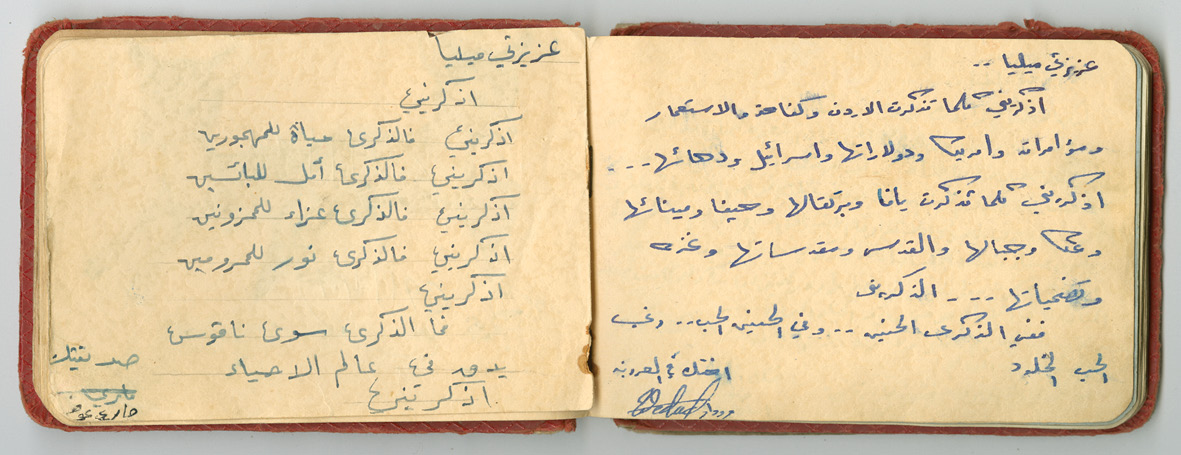 عزيزتي ميليا ..
اذكريني كلما تذكرت الاردن وكفاحه والاستعمار
ومؤامراته وامريكا ودولاراتها واسرائيل ودهائها ...
اذكريني كلما تذكرت يافا وبرتقالها وحيفا ومينائها
وعكا وجبالها والقدس ومقدساتها وغزه
وتضحياتها ....
ففي الذكرى الحنين .. وفي الحنين الحب .. وفي
الحب الخلود
اختك في العروبة
وداد
عزيزتي ميليا
اذكريني
اذكريني فالذكرى حياة للمهجورين
اذكريني فالذكرى أمل للبائسين
اذكريني فالذكرى عزاء للمحزونين
اذكريني فالذكرى نور للمحرومين
اذكريني
فما الذكرى سوى ناقوس
يدق في عالم الاحياء
اذكريني
صديقتك
ماري